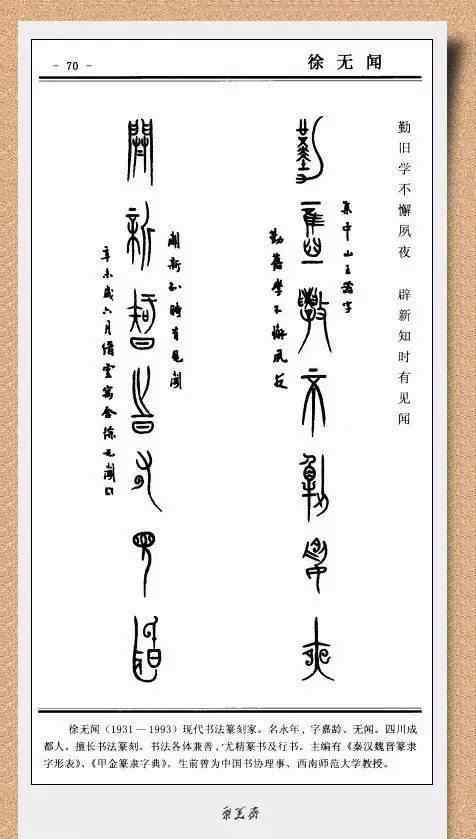 - 70 -
徐无闻
勤旧学不懈夙夜 辟新知时有见闻
集中山王器字
勤舊學不懈夙夜
勤舊學不懈夙夜
闢新知時有見聞
闢新知時有見聞
辛未歲六月
徐无聞
徐无闻（1931—1993）现代书法篆刻家。名永年，字嘉龄、无闻。四川成
都人。擅长书法篆刻。书法各体兼善，尤精篆书及行书。主编有《秦汉魏晋篆隶
字形表》、《甲金篆隶字典》。生前曾为中国书协理事、西南师范大学教授。